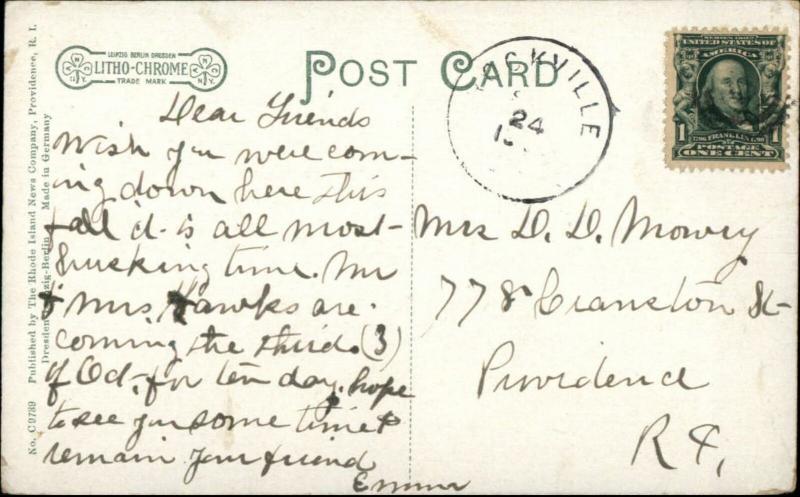 No. C9739 Published by The Rhode Island News Company, Providence, R. I.
Dresden-Leipzig-Berlin Made in Germany
LEIPZIG BERLIN DRESDEN
LITHO-CHROME
TRADE MARK
N.Y.
POST CARD
OCKVILLE
24
UNITED STATES OF
AMERICA
1 FRANKLIN 1
POSTAGE
ONE CENT
Dear Friends
Wish you were com-
ing down here this
fall it is all most
husking time. Mr
& Mrs Hawks are
coming the third (3)
of Oct, for ten day. hope
to see you some time &
remain your friend
Emma
Mrs D. D. Mowry
778 Cranston St
Providence
R I,